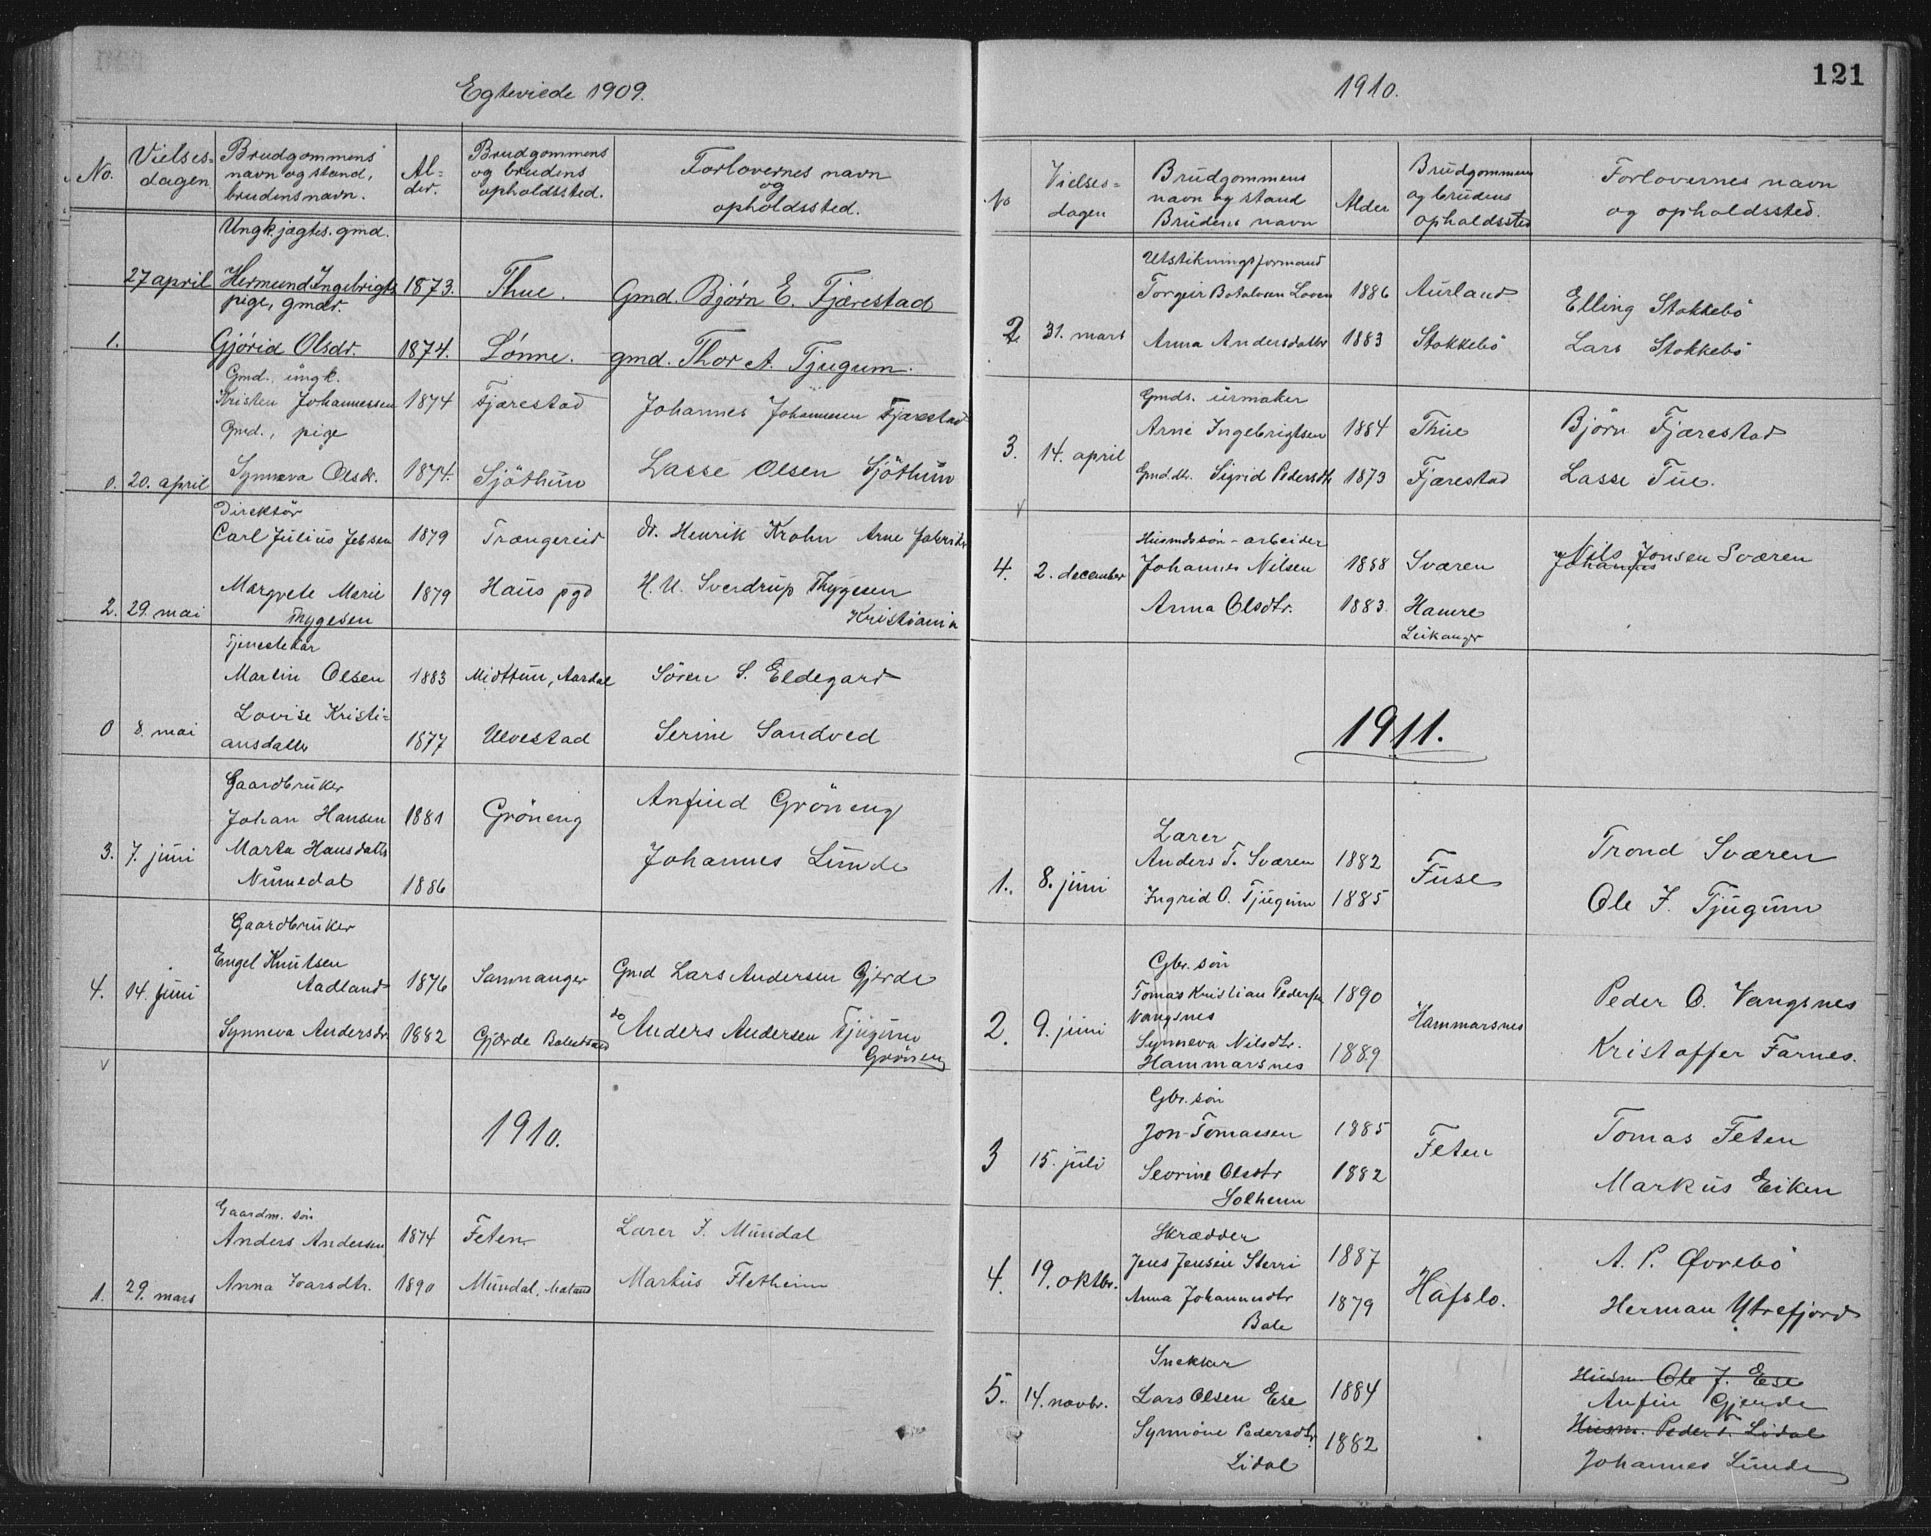 Egteviede 1909.
No.
Vielses-
dagen
Brudgommens
navn og stand,
brudens navn.
Al-
der.
Brudgommens
og brudens
opholdssted.
Forlovernes navn
og
opholdssted.
Ungk. jægtes. gmd.
27 april Hermund Ingebrigts 1873. Thue. Gmd. Bjørn E. Fjærestad
pige, gmdr.
1. Gjørid Olsdr. 1874. Lønne. gmd. Thor A. Tjugum.
Gmd., ungk.
Kristen Johannessen 1874 Fjærestad Johannes Johannesen Fjærestad
Gmd., pige
0. 20. april Synneva Olsdr. 1874. Sjöthun Lasse Olsen Sjöthun
Direktör
Carl Julius Jebsen 1879 Trængereid Dr. Henrik Krohn Arne
2. 29. mai Margrete Marie 1879 Haus pgd H. U. Sverdrup Thygesen
Thygesen Kristiania
Tjenestekar
Martin Olsen 1883 Midttun, Aardal Sören S. Eldegard
0 8. mai Lovise Kristi-
ansdatter 1877 Ulvestad Serine Sandved
Gaardbruker
Johan Hansen 1881 Gröneng Anfind Gröneng
3. 7. juni Marta Hansdatter Johannes Lunde
Numedal 1886
Gaardbruker
Engel Knutsen
Aadland 1876 Samnanger Gmd Lars Andersen Gjerde
4. 14. juni
Synneva Andersdr. 1882 Gjærde Balestrand do Anders Andersen Tjugum
Gröneng
1910.
Gaardm. sön
Anders Andersen 1874 Feten Lærer I. Mundal
1. 29. mars Anna Ivarsdtr. 1890 Mundal, Maland Markus Fletheim
1910.
121
No
Vielses-
dagen
Brudgommens
navn og stand
Brudens navn
Alder
Brudgommens
og brudens
opholdssted
Forlovernes navn
og opholdssted.
Utstikningsformand
Torgeir Botolvsen Loven 1886 Aurland Elling Stokkebö
2 31. mars Anna Andersdatter 1883 Stokkebö Lars Stokkebö
Gmds. urmaker
Arne Ingebrigtsen 1884 Thue Björn Fjærestad
3. 14. april
Gmd.dtr. Sigrid Pedersdtr 1873 Fjærestad Lasse Tue.
Husmdssön - arbeider
4. 2. december Johannes Nilsen 1888 Sværen Nils Jonsen Sværen
Johannes
Anna Olsdtr. 1883. Hamre
Leikanger
1911.
Lærer
Anders T. Sværen 1882 Fuse Trond Sværen
1. 8. juni
Ingrid O. Tjugum 1885 Ole J. Tjugum
Gbr. sön
Tomas Kristian Pedersen 1890 Peder O. Vangsnes
Vangsnes
2. 9. juni Hammarsnes
Synneva Nilsdtr.
Hammarsnes 1889 Kristoffer Farnes.
Gbr. sön
Jon Tomassen 1885 Feten Tomas Feten
3 15. juli
Sevrine Olsdtr 1882
Solheim Markus Eiken
Skrædder
4. 19. oktbr. Jens Jensen Sterri 1887 A. P. Øvrebö
Anna Johannesdtr 1879 Hafslo. Herman Ytrefjord
Bale
Snekker
5. 14. novbr. Lars Olsen Ese 1884 Husm. Ole J. Ese
Anfin Gjerde
Synnöve Pedersdtr. 1882 Husm. Peder T. Lidal
Lidal Johannes Lunde